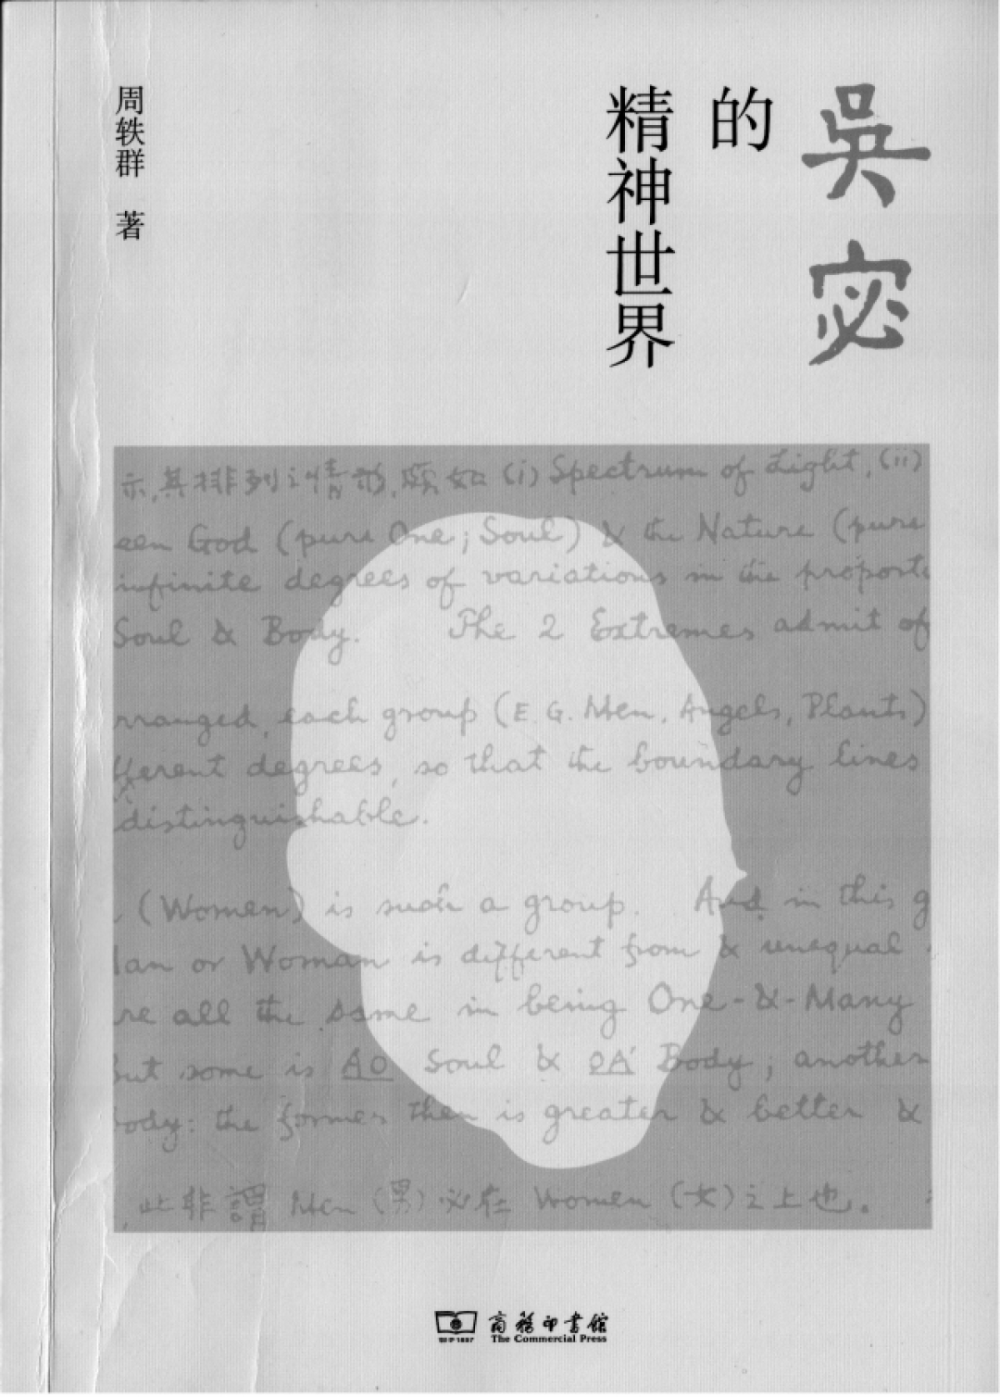 吳宓
的
精神世界
周轶群 著
示,其排列之情形,頗如 (i) Spectrum of Light, (ii)
een God (pure One; Soul) & the Nature (pure
infinite degrees of variations in the proporti
Soul & Body. The 2 Extremes admit of
rranged, each group (E.G. Men, Angels, Plants)
fferent degrees, so that the boundary lines
distinguishable.
(Women) is such a group. And in this g
an or Woman is different from & unequal
re all the same in being One-&-Many
But some is AO Soul & OA Body; another
ody: the former then is greater & better &
此非謂 Men (男) 必在 Women (女) 之上也。
商務印書館
The Commercial Press